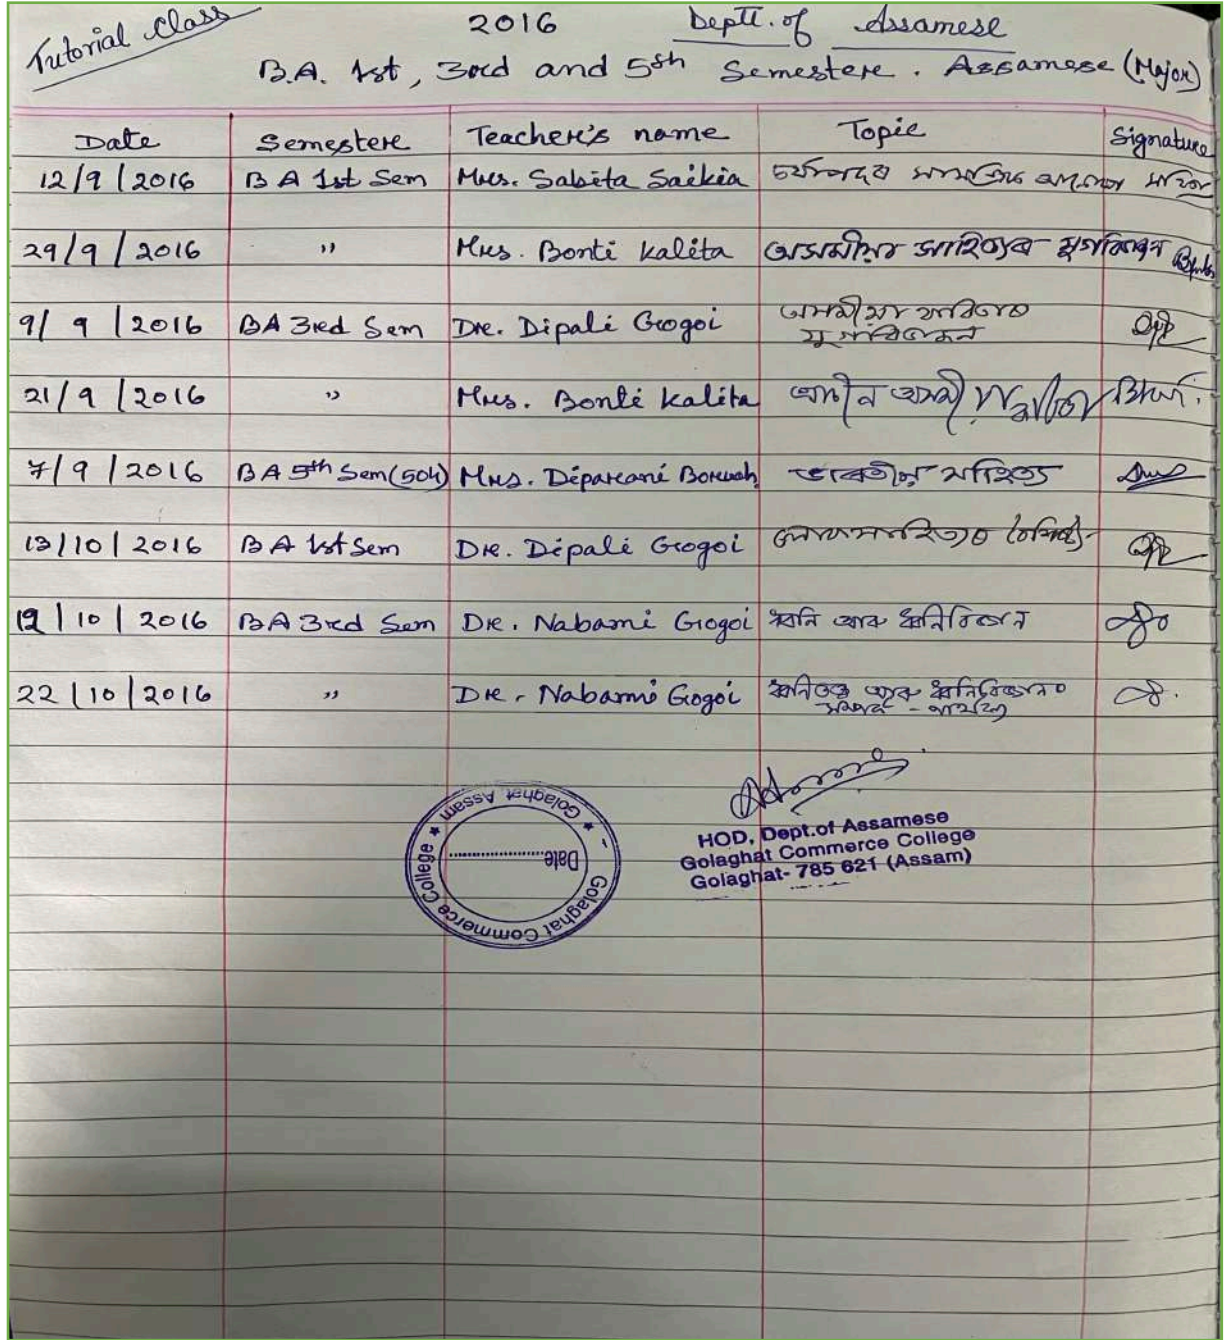 Tutorial Class 2016 Deptt. of Assamese
B.A. 1st, 3rd and 5th Semester. Assamese (Major)
Date Semester Teacher's name Topic Signature
12/9/2016 BA 1st Sem Mrs. Sabita Saikia
29/9/2016 " Mrs. Bonti Kalita অসমীয়া সাহিত্যৰ যুগবিভাজন
9/9/2016 BA 3rd Sem Dr. Dipali Gogoi অসমীয়া
যুগবিভাজন
21/9/2016 " Mrs. Bonti Kalita
7/9/2016 BA 5th Sem (504) Mrs. Diparani Boruah ভাৰতীয় সাহিত্য
13/10/2016 BA 1st Sem Dr. Dipali Gogoi লোকসাহিত্যৰ বৈশিষ্ট্য
19/10/2016 BA 3rd Sem Dr. Nabami Gogoi ধ্বনি আৰু ধ্বনিবিজ্ঞান
22/10/2016 " Dr. Nabami Gogoi ধ্বনিতত্ত্ব আৰু ধ্বনিবিজ্ঞানৰ
সম্পৰ্ক - পাৰ্থক্য
HOD, Dept.of Assamese
Golaghat Commerce College
Golaghat- 785 621 (Assam)
Golaghat Commerce College ★ Golaghat Assam ★
Date